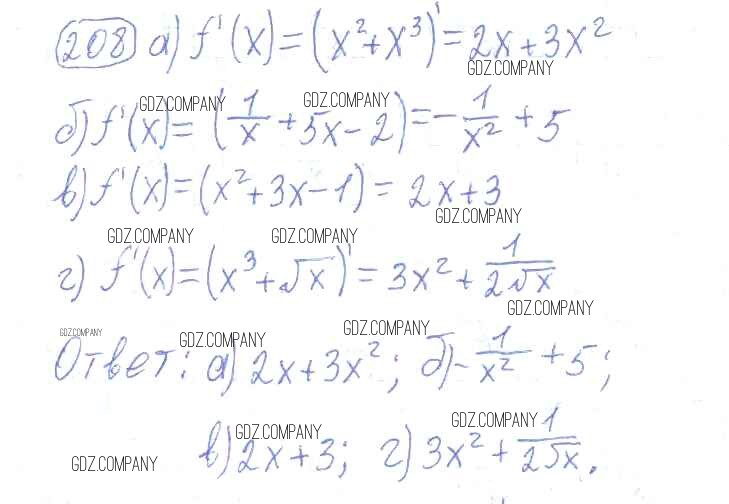 208 а) f'(x) = (x² + x³)' = 2x + 3x²
GDZ.COMPANY
GDZ.COMPANY GDZ.COMPANY
б) f'(x) = (1/x + 5x - 2) = -1/x² + 5
в) f'(x) = (x² + 3x - 1) = 2x + 3
GDZ.COMPANY
GDZ.COMPANY GDZ.COMPANY
г) f'(x) = (x³ + √x)' = 3x² + 1/(2√x)
GDZ.COMPANY
GDZ.COMPANY GDZ.COMPANY GDZ.COMPANY
Ответ: а) 2x + 3x²; б) -1/x² + 5;
GDZ.COMPANY GDZ.COMPANY
в) 2x + 3; г) 3x² + 1/(2√x).
GDZ.COMPANY